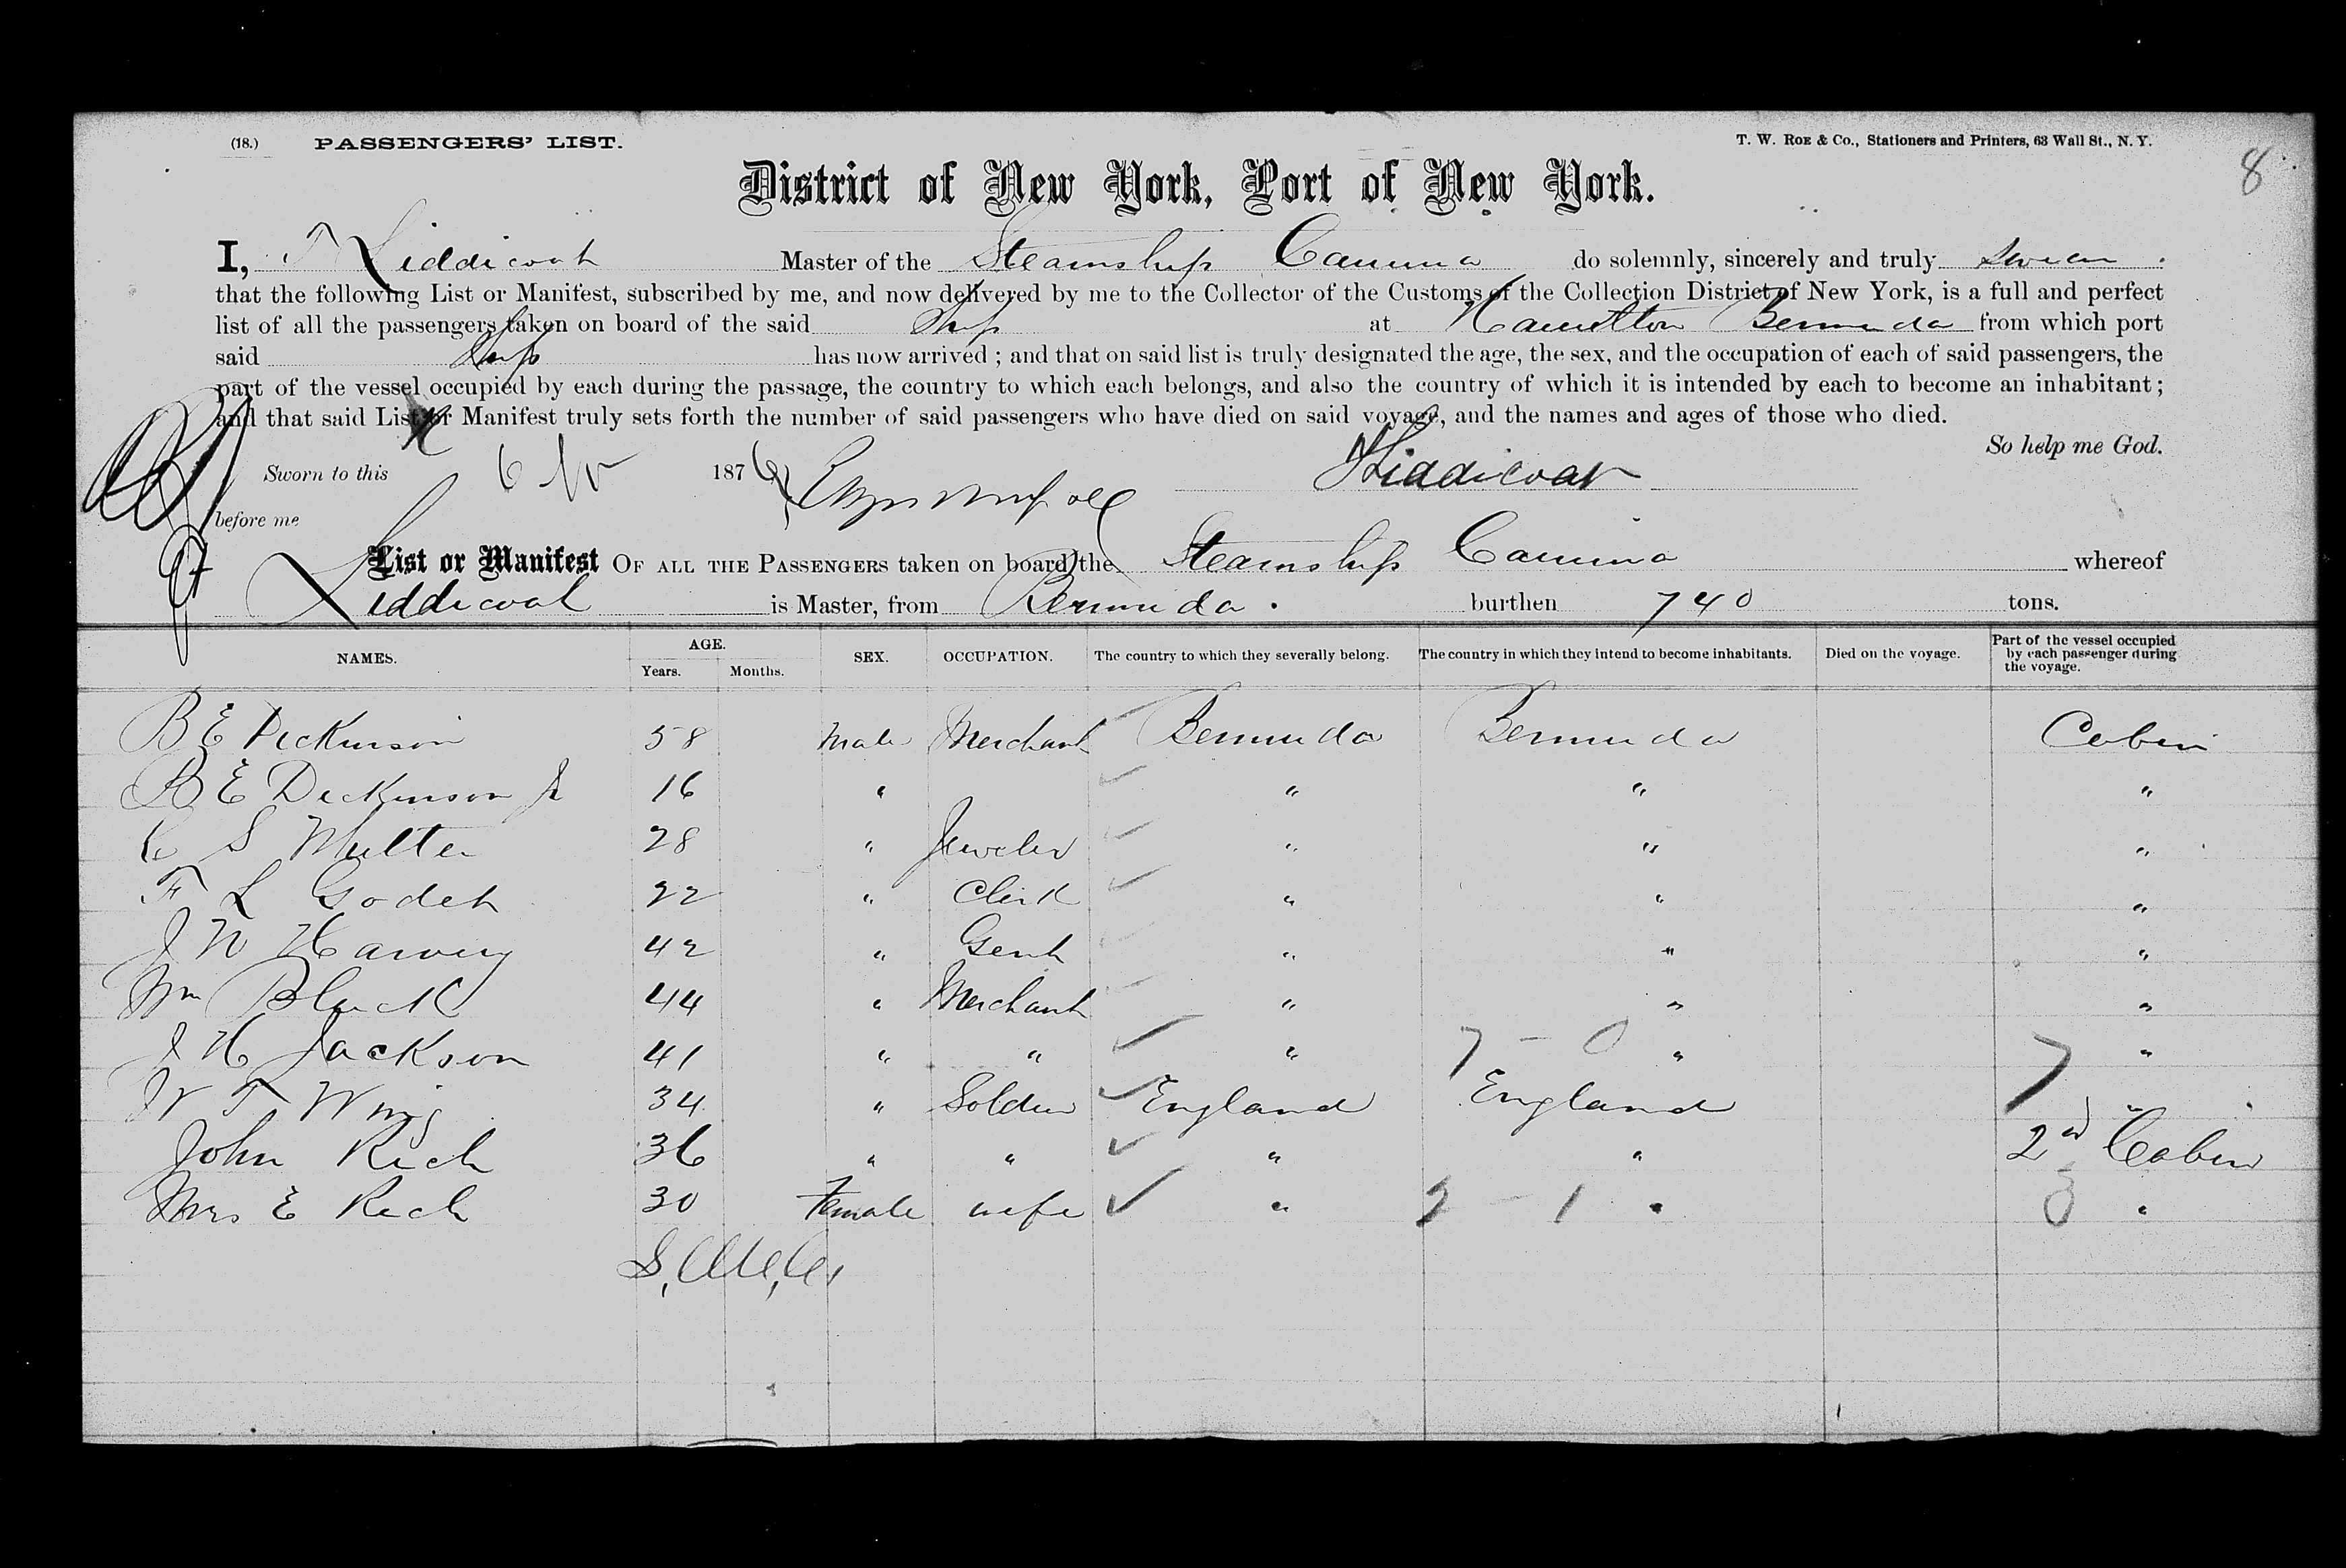 (18.) PASSENGERS' LIST. T. W. ROE & Co., Stationers and Printers, 63 Wall St., N. Y.
8
District of New York, Port of New York.
I, T Liddicoat Master of the Steamship Canima do solemnly, sincerely and truly swear
that the following List or Manifest, subscribed by me, and now delivered by me to the Collector of the Customs of the Collection District of New York, is a full and perfect
list of all the passengers taken on board of the said Ship at Hamilton Bermuda from which port
said Ship has now arrived ; and that on said list is truly designated the age, the sex, and the occupation of each of said passengers, the
part of the vessel occupied by each during the passage, the country to which each belongs, and also the country of which it is intended by each to become an inhabitant ;
and that said List or Manifest truly sets forth the number of said passengers who have died on said voyage, and the names and ages of those who died.
So help me God.
Sworn to this 6 1876 Liddicoat
before me
List or Manifest OF ALL THE PASSENGERS taken on board the Steamship Canima whereof
Liddicoat is Master, from Bermuda . burthen 740 tons.
NAMES. AGE. Years. Months. SEX. OCCUPATION. The country to which they severally belong. The country in which they intend to become inhabitants. Died on the voyage. Part of the vessel occupied by each passenger during the voyage.
B E Dickinson 58 Male Merchant Bermuda Bermuda Cabin
B E Dickinson Jr 16 " " " "
C S Multer 28 " Jeweler " " "
F L Godet 22 " Clerk " " "
J N Harvey 42 " Gent " " "
Wm Black 44 " Merchant " " "
J H Jackson 41 " " " 7 - 0 " 7 "
W T Wing 34 " Soldier England England "
John Rich 36 " " " " 2nd Cabin
Mrs E Rich 30 Female wife " 2 - 1 " 3 "